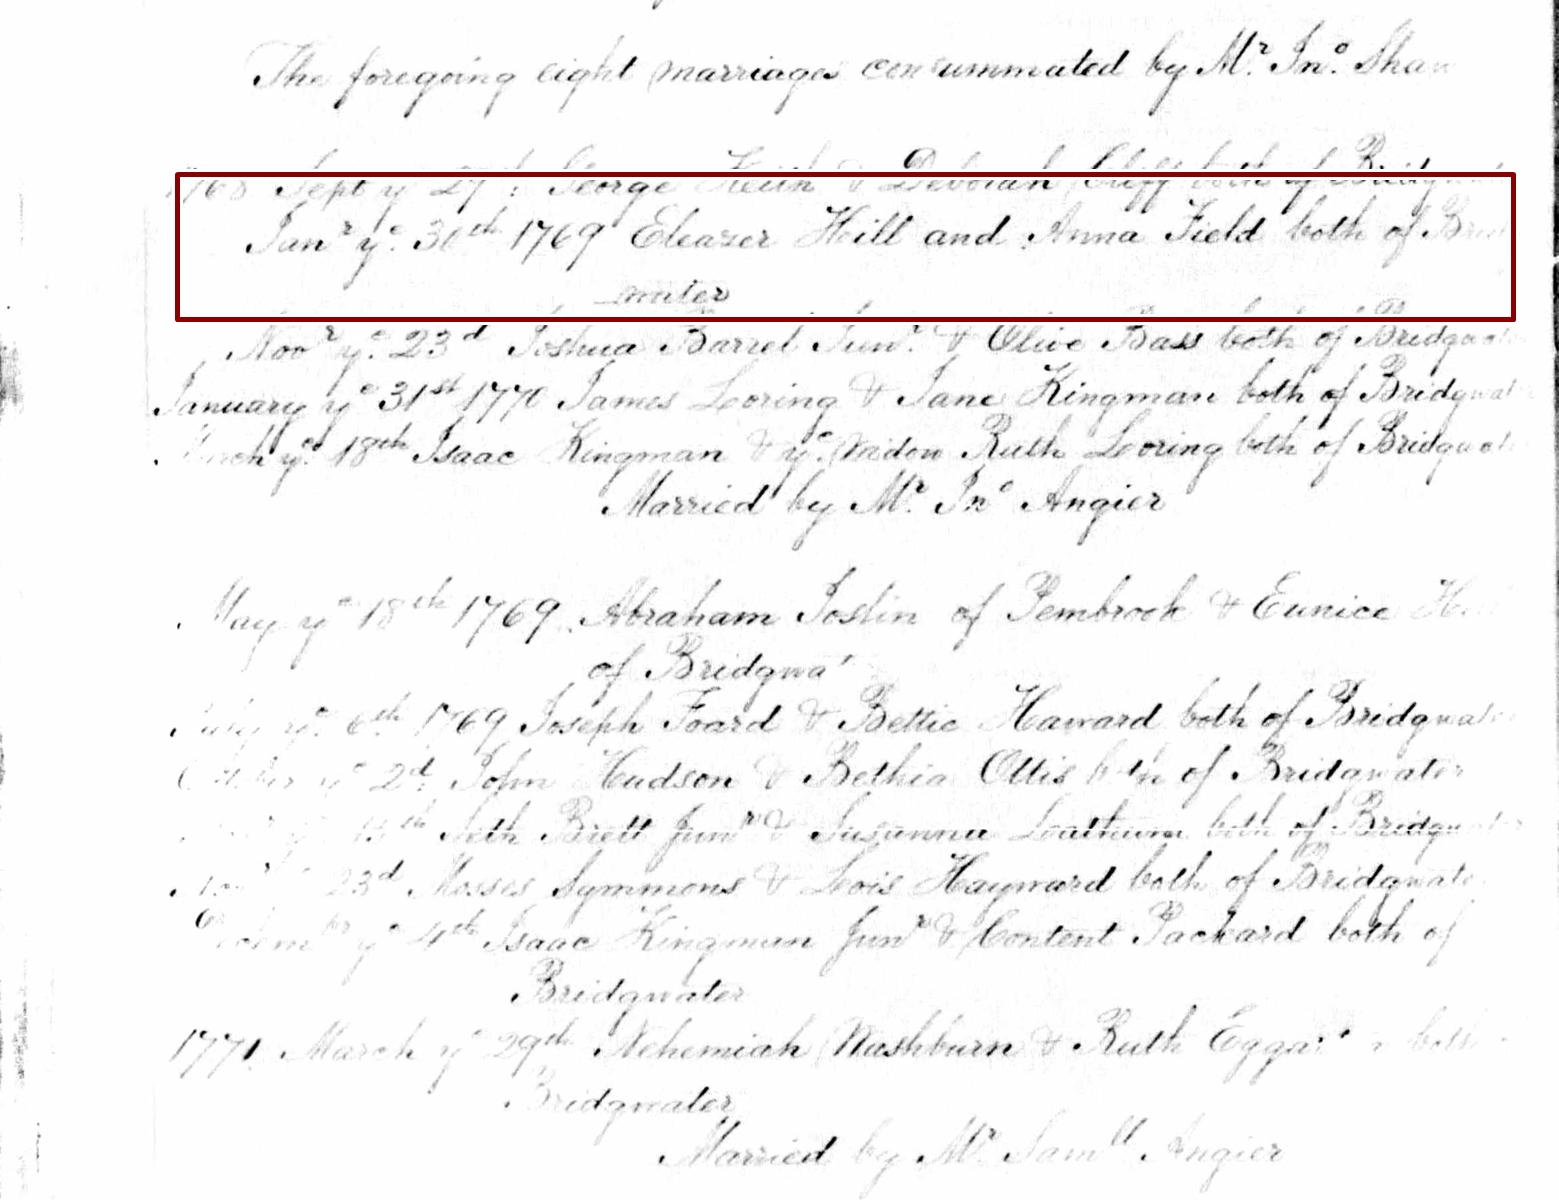 The foregoing eight marriages consummated by Mr. Jno. Shaw
1768 Sept ye 29th: George Keith & Deborah Cliff both of Bridgwa
Janr ye. 30th 1769 Eleazer Hill and Anna Field both of Brid
water
Novr ye. 23d Joshua Barrel Junr. & Olive Bass both of Bridgwate
January ye 31st 1770 James Loring & Jane Kingman both of Bridgwat
March ye 18th Isaac Kingman & ye. Widow Ruth Looring both of Bridgwat
Married by Mr. Jno Angier
May ye 18th 1769 Abraham Joslin of Pembrook & Eunice
of Bridgwa
July ye. 6th. 1769 Joseph Foard & Bettie Haward both of Bridgwate
ye 2d. John Hudson & Bethia Ottis both of Bridgwater
Seth Brett Junr & Susanna Loathum both of Bridgwater
23d Mosses Symmons & Lois Hayward both of Bridgwate
ye 4th Isaac Kingman Junr & Content Packard both of
Bridgwater
1771 March ye 29th Nehemiah Washburn & Ruth both
Bridgwater
Married by Mr Samll Angier